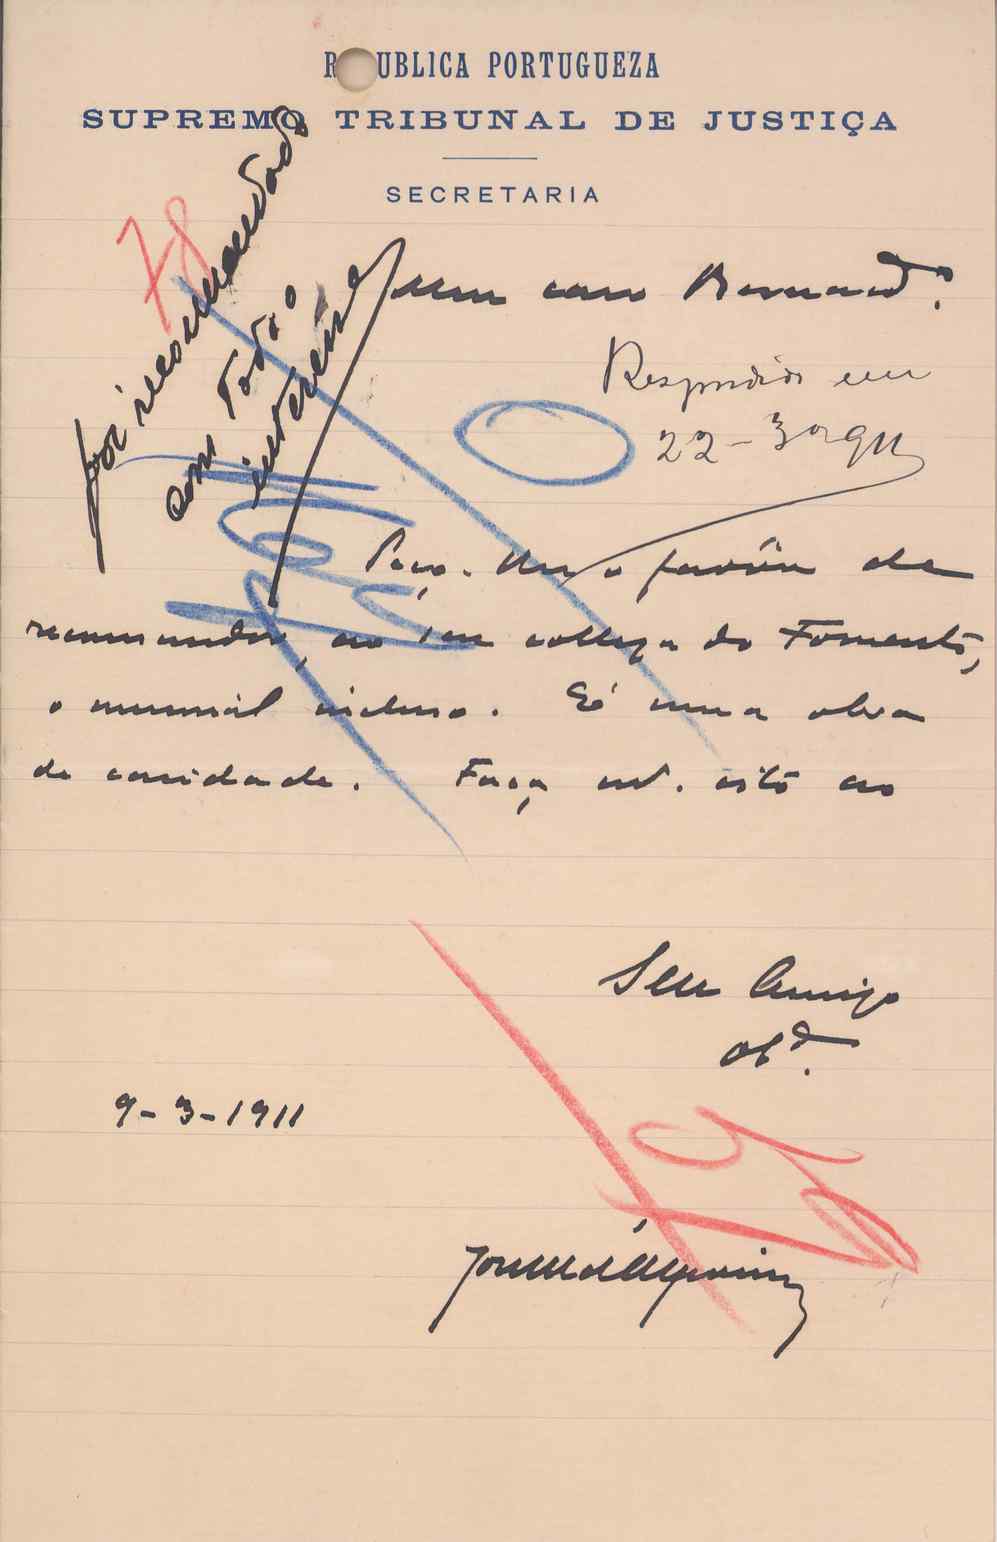 R UBLICA PORTUGUEZA
SUPREMO TRIBUNAL DE JUSTIÇA
SECRETARIA
78
foi recommendado
com todo o
interesse
Meu caro Bernard.º
Respondido em
22-3º-911
Peço-lhe o favor de
recommendar, ao seu collega do Fomento,
o memorial incluso. É uma obra
de caridade. Faça isto ao
Seu Amigo
obg.do
9-3-1911